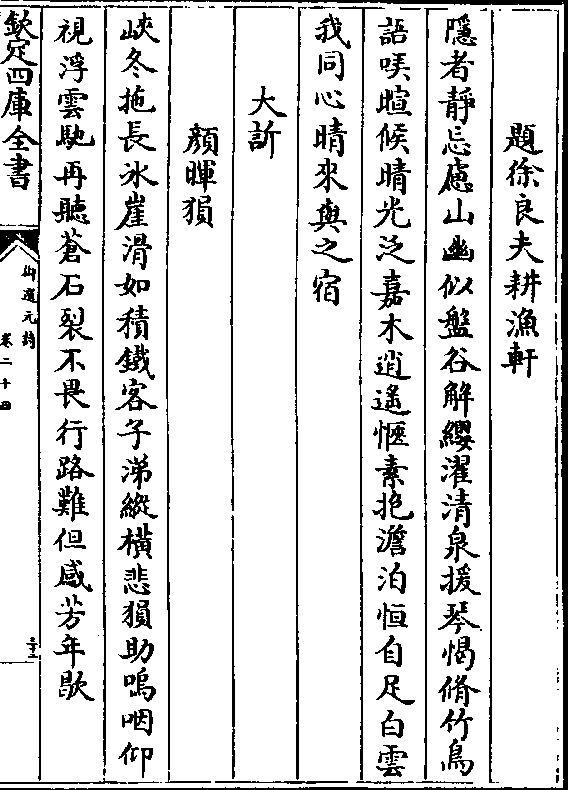 題徐良夫耕漁軒
隱者靜忘慮山幽似盤谷解纓濯清泉援琴憩脩竹鳥
語𠸄暄候晴光泛嘉木逍遙愜素抱澹泊恒自足白雲
我同心晴來與之宿
大訢
顔暉猿
峽冬拖長冰崖滑如積鐵客子涕縱橫悲猿助嗚咽仰
視浮雲馳再聽蒼石裂不畏行路難但感芳年歇
欽定四庫全書
御選元詩
卷二十四
二十三